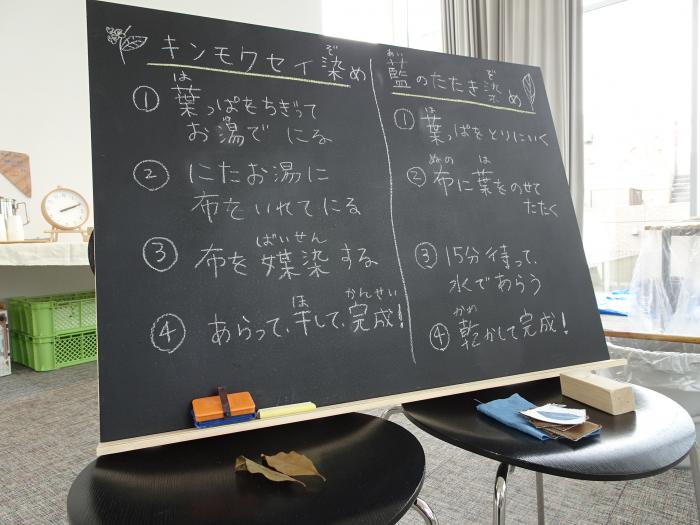 ぞ
キンモクセイ染め
は
① 葉っぱをちぎって
お湯で にる
② にたお湯に
布をいれてにる
ばいせん
③ 布を 媒染 する
ほ かんせい
④ あらって、干して、完成!
あい ぞ
藍のたたき染め
は
① 葉っぱをとりにいく
ぬの は
② 布に葉をのせて
たたく
③ 15分待って、
水であらう
かわ
④ 乾かして完成!